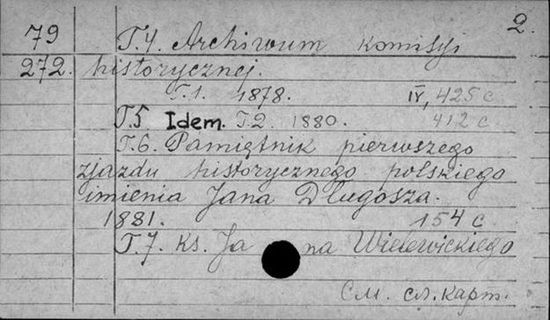 2.
79 T.4. Archiwum komisyi
272. historycznej.
T.1. 1878. IV, 425 c
T.5 Idem. T.2 1880. 412 c
T.6. Pamiętnik pierwszego
zjazdu historycznego polskiego
imienia Jana Długosza.
1881. 154 c
T.7. Ks. Jana Wielewickiego
См. сл. карт.